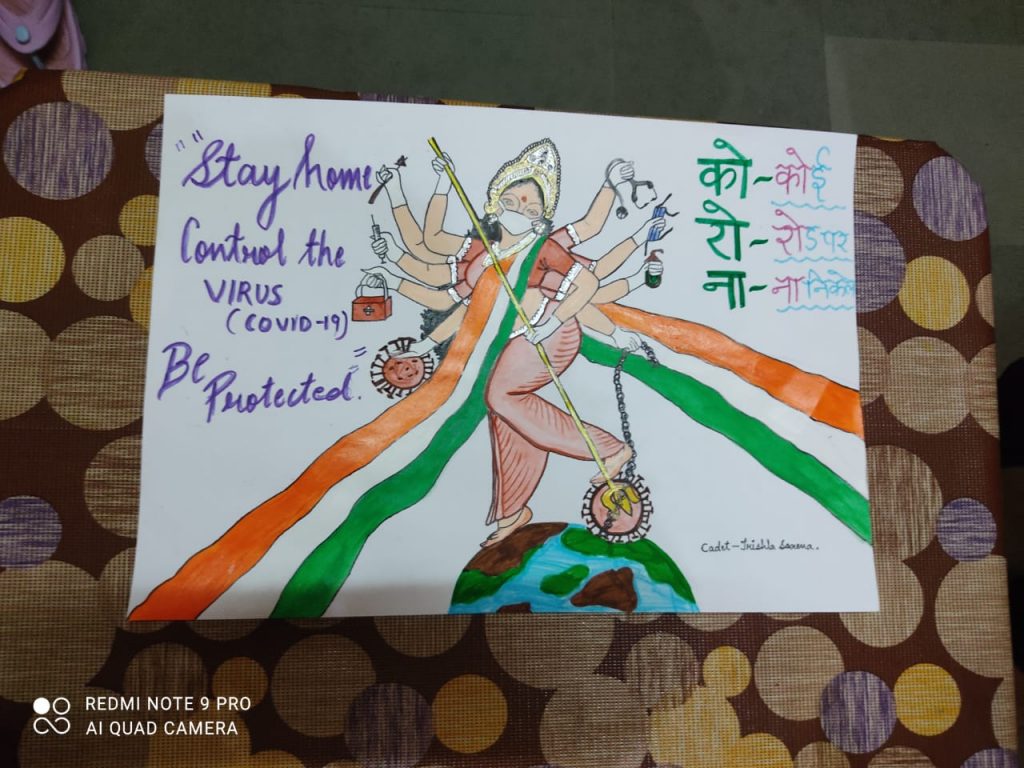 "Stay home
Control the
VIRUS
(COVID-19)
Be
Protected."
को - कोई
रो - रोड पर
ना - ना निकले
Cadet - Trishla Saxena.
REDMI NOTE 9 PRO
AI QUAD CAMERA